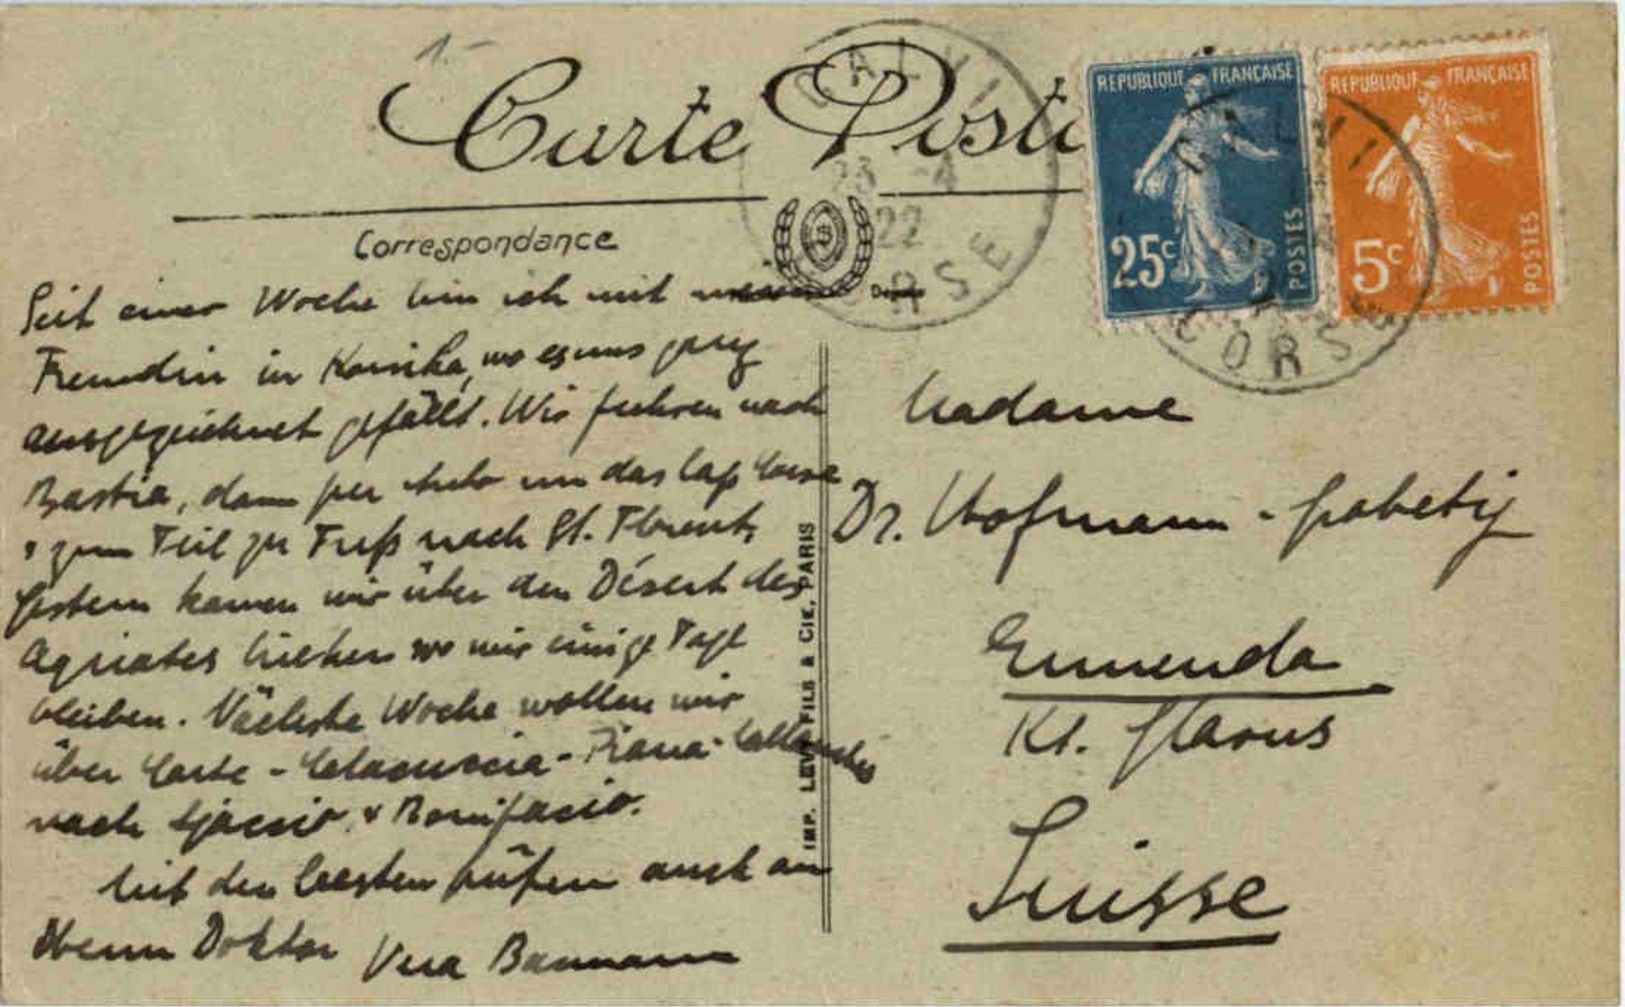 1.-
Carte Posta
CALVI
23 -4
22
CORSE
REPUBLIQUE FRANÇAISE
25c
POSTES
REPUBLIQUE FRANÇAISE
5c
POSTES
CALVI
CORSE
Correspondance
Seit einer Woche bin ich mit meiner
Freundin in Korsika, wo es uns ganz
ausgezeichnet gefällt. Wir fuhren nach
Bastia, dann per Auto um das Cap Corse
& zum Teil zu Fuß nach St. Florent,
Gestern kamen wir über den Désert des
Agriates hieher wo wir einige Tage
bleiben. Nächste Woche wollen wir
über Corte - - Piana - Calanches
nach Ajaccio & Bonifacio.
Mit den besten Grüßen auch an
Herrn Doktor Vera Baumann
IMP. LEVY FILS & CIE, PARIS
Madame
Dr. Hofmann -
Ennenda
Kt. Glarus
Suisse